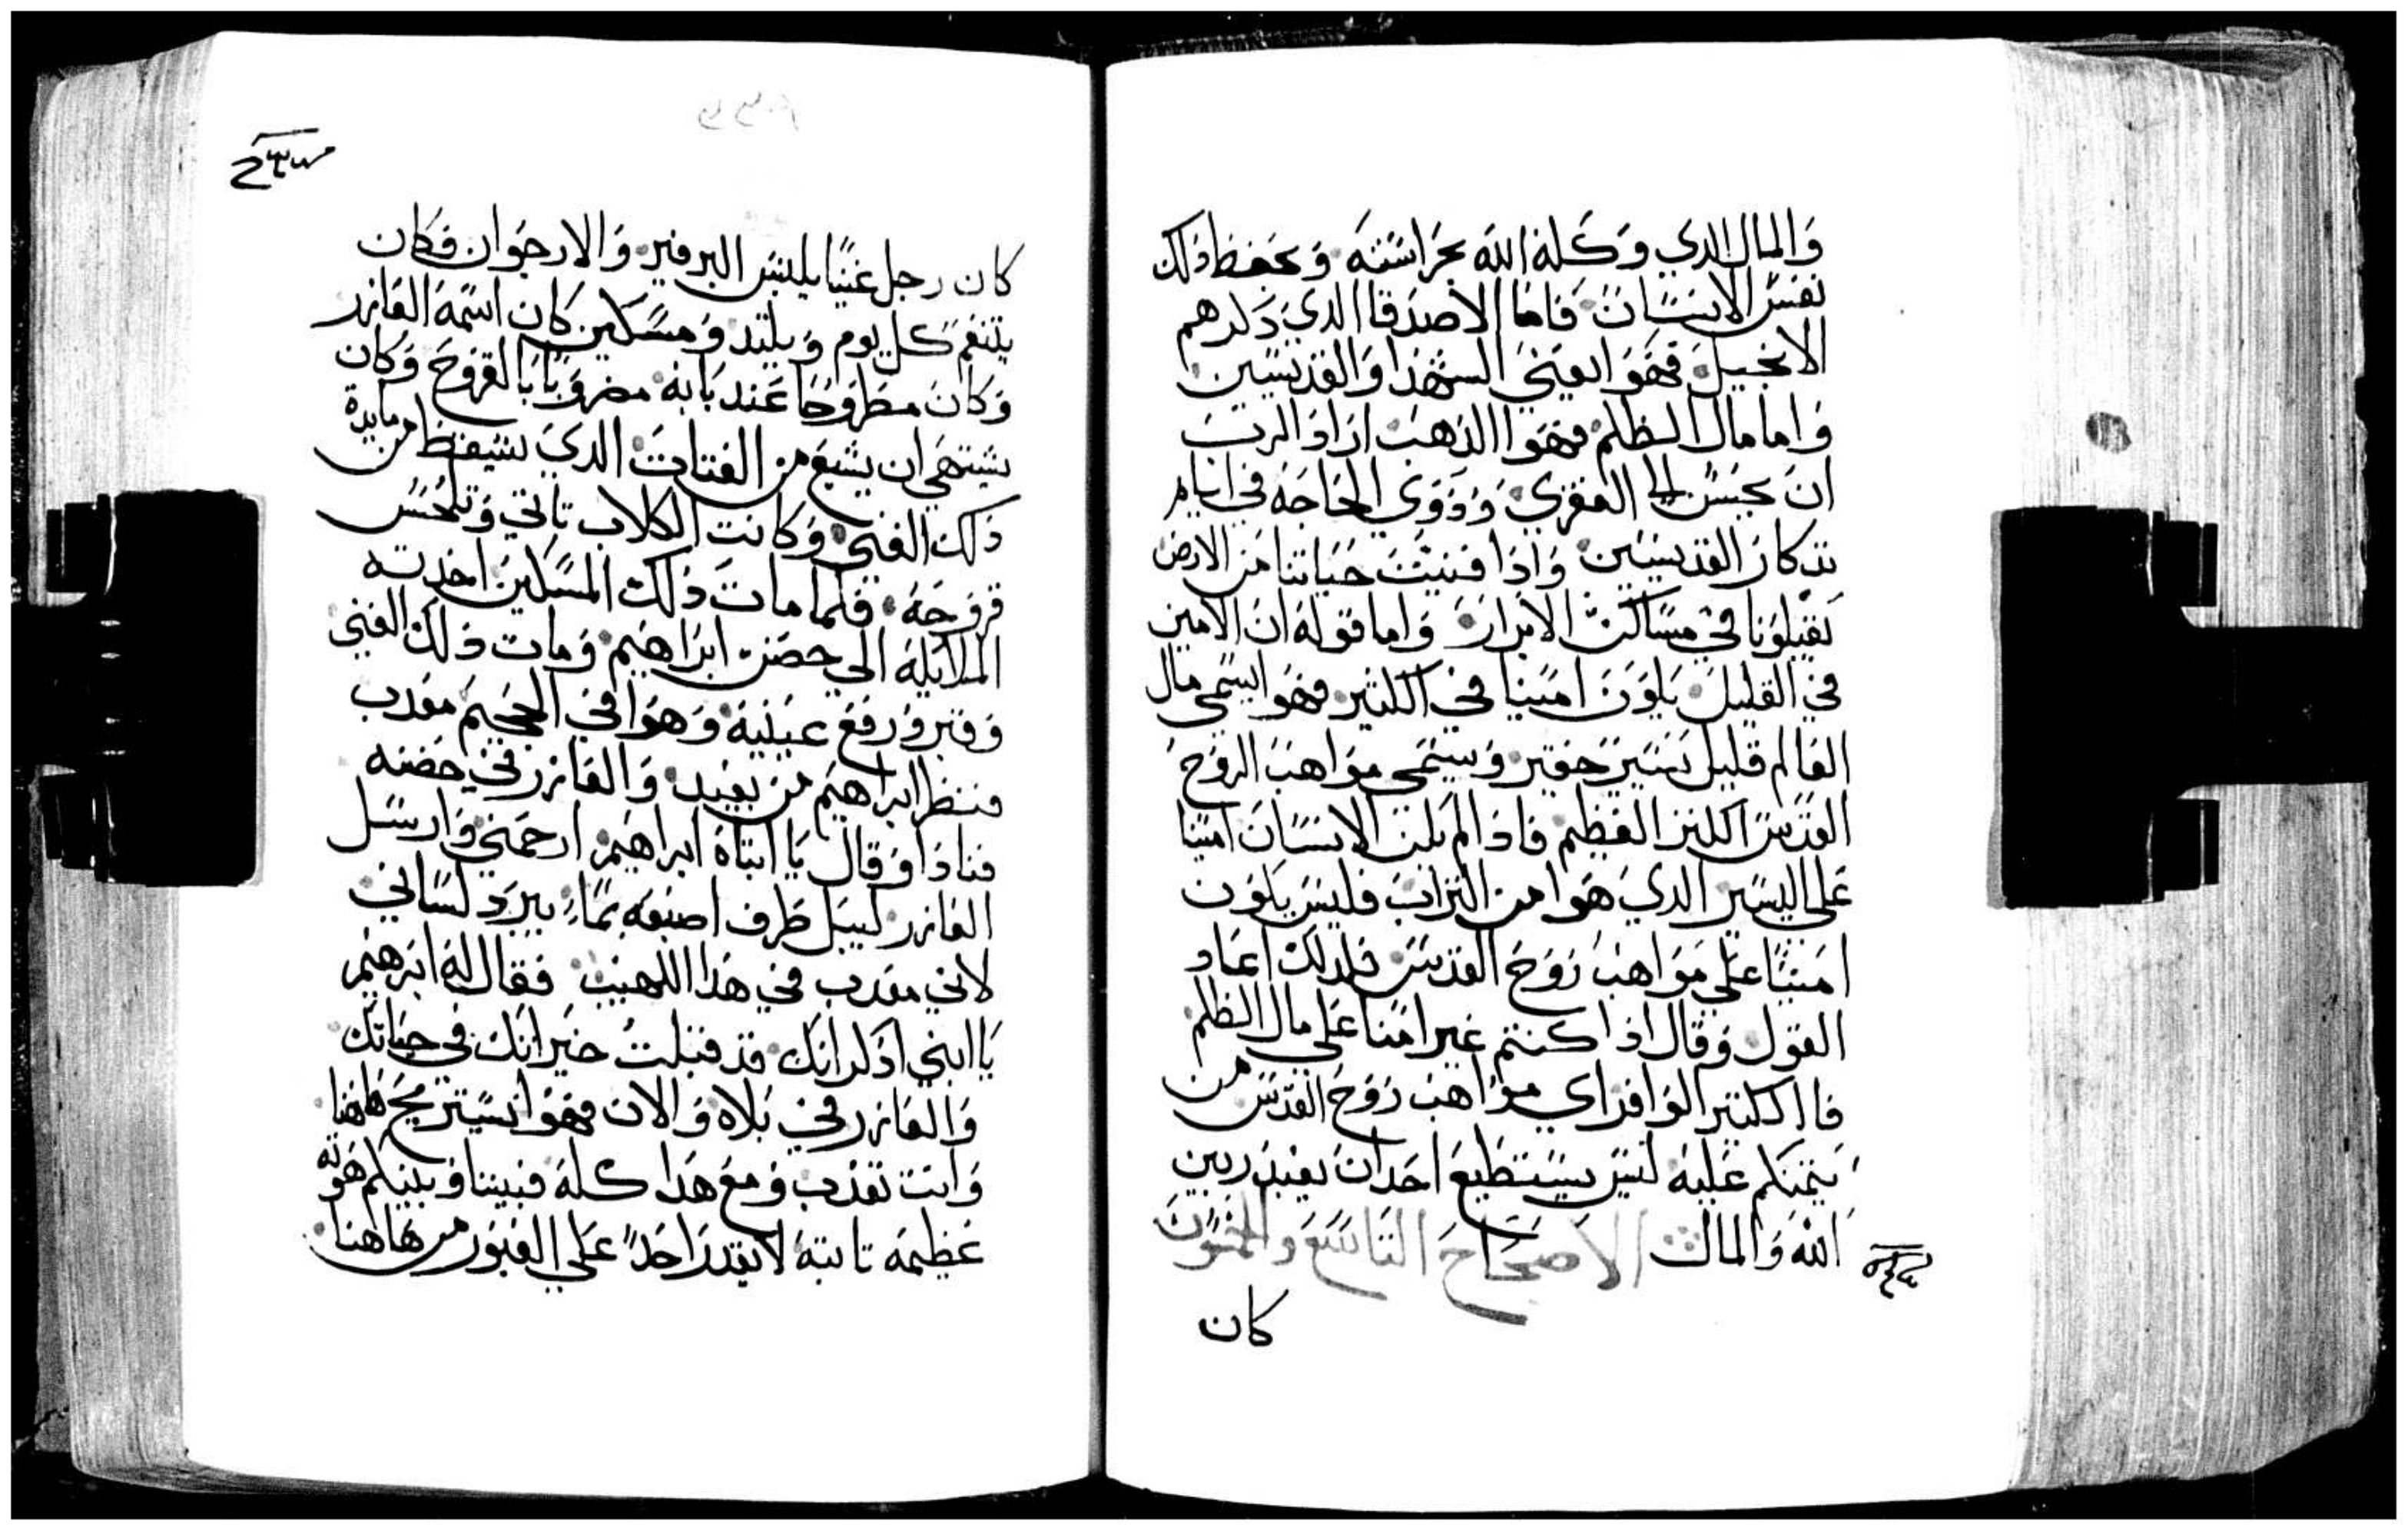 والمال الدي وكله الله بحراسته وبحفظ دلك
نفس الانسان فاما الاصدقا الدي دكرهم
الانجيل فهوا يعني الشهدا والقديسين
واما مال الظلم فهوا الدهب اراد الرب
ان يحسن الي الفقري ودوي الحاجه في ايام
تدكار القديسين وادا فنيت حياتنا من الارض
يقبلونا في مساكن الابرار واما قوله ان الامين
في القليل يكون امينا في الكثير فهوا يسمي مال
العالم قليل يسير حقير ويسمي مواهب الروح
القدس الكنز العظيم فادا لم يكن الانسان امينا
علي اليسير الدي هوا من التراب فليس يكون
امينا علي مواهب روح القدس فلدلك اعاد
القول وقال ادا كنتم غير امنا علي مال الظلم
فا الكثير الوافر اي مواهب روح القدس من
يتمنكم عليه ليس يستطيع احد ان يعبد ربين
الله والمال الاصحاح التاسع والخمسون
كان
كان رجل غنيا يلبس البرفير والارجوان فكان
يتنعم كل يوم ويلتد ومسكين كان اسمه العازر
وكان مطروحا عند بابه مضروبا بالقروح وكان
يشتهي ان يشبع من الفتات الدي يسقط من مايدة
دلك الغني وكانت الكلاب تاتي وتلحس
قروحه فلما مات دلك المسكين اخدته
الملايكة الي حضن ابراهيم ومات دلك الغني
وقبر ورفع عينيه وهوا في الجحيم معدب
فنظر ابراهيم من بعيد والعازر في حضنه
فنادا وقال يا ابتاه ابراهيم ارحمني وارسل
العازر ليبل طرف اصبعه بماء يبرد لساني
لاني معدب في هدا اللهيب فقال له ابرهيم
يا ابني ادكر انك قد قبلت خيراتك في حياتك
والعازر في بلاه والان فهوا يستريح هاهنا
وانت تعدب ومع هدا كله فبيننا وبينكم هوته
عظيمه تابته لا يقدر احد علي العبور من هاهنا